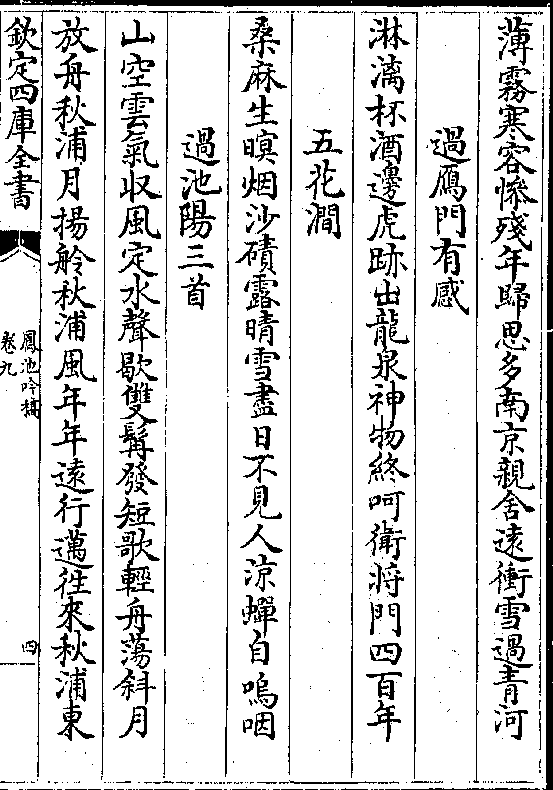 薄霧寒容慘殘年歸思多南京親舍遠衝雪過青河
過鴈門有感
淋漓杯酒邊虎跡出龍泉神物終呵衛將門四百年
五花澗
桑麻生暝烟沙磧露晴雪盡日不見人涼蟬自嗚咽
過池陽三首
山空雲氣收風定水聲歇雙髯發短歌輕舟蕩斜月
放舟秋浦月揚舲秋浦風年年遠行邁徃來秋浦東
欽定四庫全書
鳳池吟稿
卷九
四